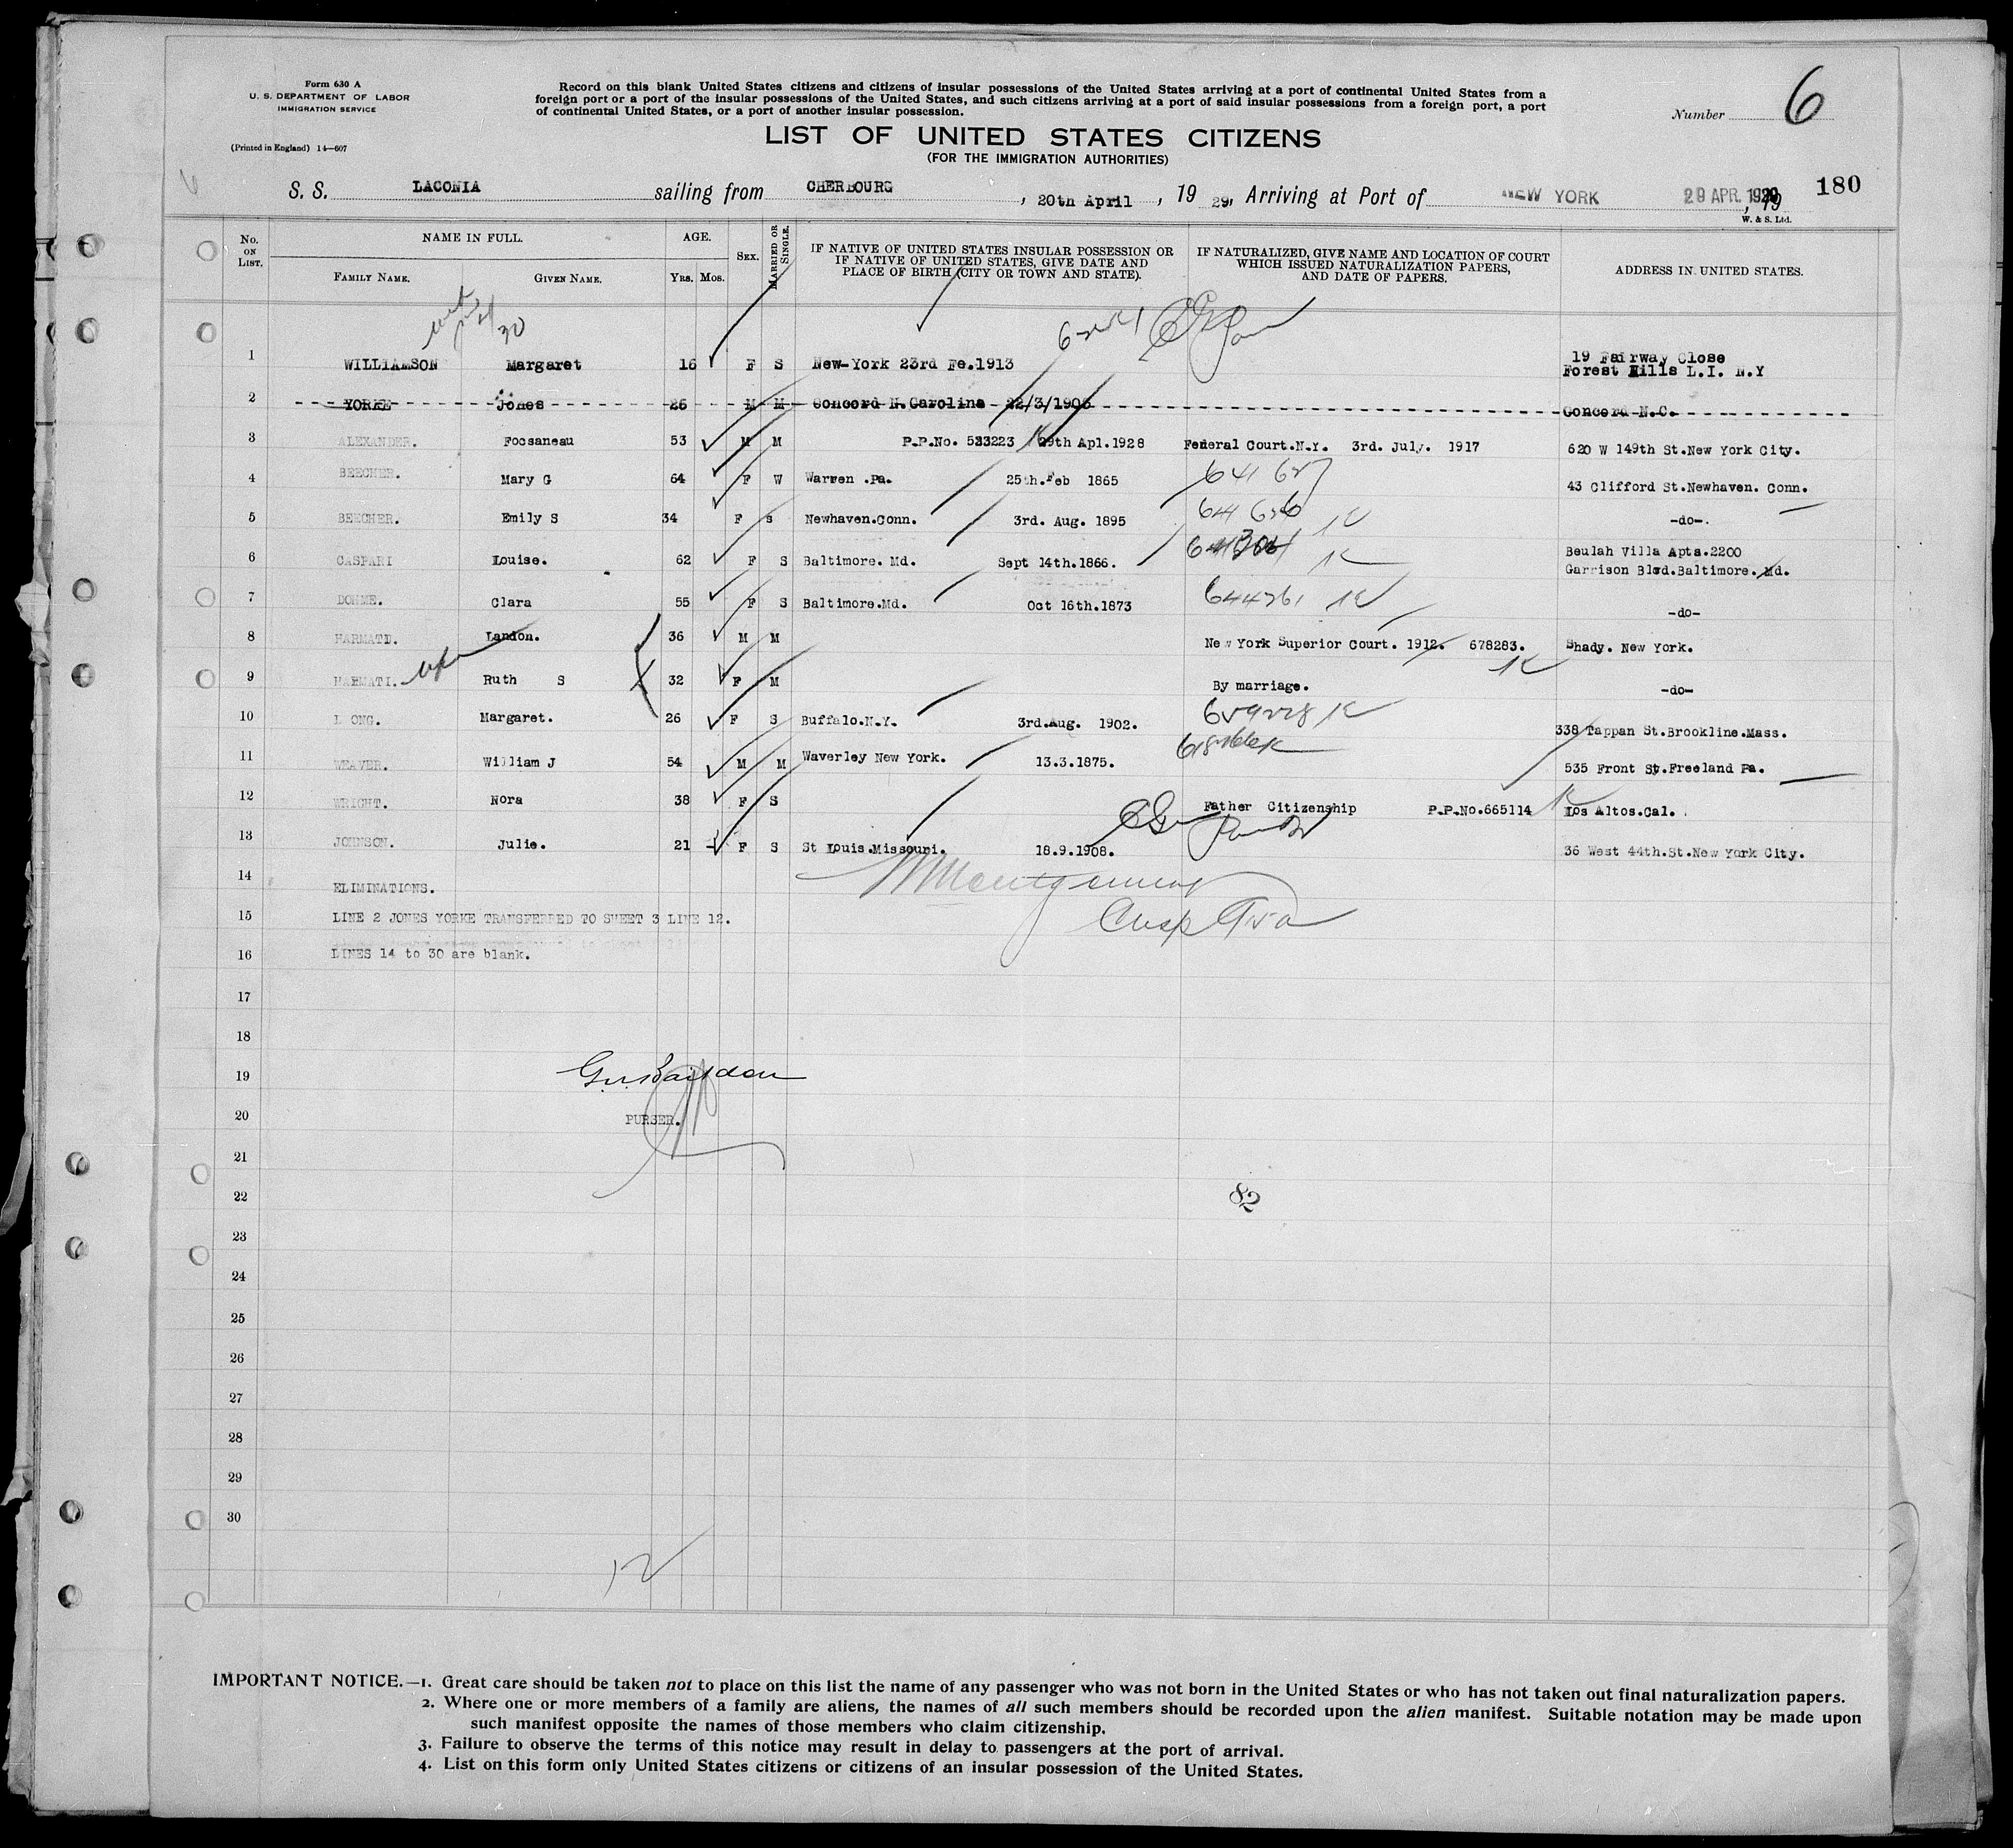 Form 630 A
U. S. DEPARTMENT OF LABOR
IMMIGRATION SERVICE
(Printed in England) 14—607
Record on this blank United States citizens and citizens of insular possessions of the United States arriving at a port of continental United States from a
foreign port or a port of the insular possessions of the United States, and such citizens arriving at a port of said insular possessions from a foreign port, a port
of continental United States, or a port of another insular possession.
Number 6
LIST OF UNITED STATES CITIZENS
(FOR THE IMMIGRATION AUTHORITIES)
S. S. LACONIA sailing from CHERBOURG, 20th April, 19 29, Arriving at Port of NEW YORK 29 APR. 1929, 19 180
W. & S. Ltd.
No. ON LIST. NAME IN FULL. AGE. SEX. MARRIED OR SINGLE. IF NATIVE OF UNITED STATES INSULAR POSSESSION OR IF NATIVE OF UNITED STATES, GIVE DATE AND PLACE OF BIRTH (CITY OR TOWN AND STATE). IF NATURALIZED, GIVE NAME AND LOCATION OF COURT WHICH ISSUED NATURALIZATION PAPERS, AND DATE OF PAPERS. ADDRESS IN UNITED STATES.
FAMILY NAME. GIVEN NAME. YRS. MOS.
30
1 WILLIAMSON Margaret 16 F S New-York 23rd Fe.1913 19 Fairway Close
Forest Hills L.I. N.Y
2 YORKE Jones 26 M M Concord N.Carolina 22/3/1903 Concord N.C.
3 ALEXANDER. Foosaneau 53 M M P.P.No. 533223 29th Apl.1928 Federal Court.N.Y. 3rd. July. 1917 620 W 149th St.New York City.
4 BEECHER. Mary G 64 F W Warren .Pa. 25th.Feb 1865 43 Clifford St.Newhaven. Conn.
5 BEECHER. Emily S 34 F S Newhaven.Conn. 3rd. Aug. 1895 -do-.
6 CASPARI Louise. 62 F S Baltimore. Md. Sept 14th.1866. Beulah Villa Apts.2200
Garrison Blvd.Baltimore. Md.
7 DOHME. Clara 55 F S Baltimore.Md. Oct 16th.1873 -do-
8 HARMATI. Landon. 36 M M New York Superior Court. 1912. 678283. Shady. New York.
9 HARMATI. Ruth S 32 F M By marriage. -do-
10 L ONG. Margaret. 26 F S Buffalo.N.Y. 3rd.Aug. 1902. 338 Tappan St.Brookline.Mass.
11 WEAVER. William J 54 M M Waverley New York. 13.3.1875. 535 Front St.Freeland Pa.
12 WRIGHT. Nora 38 F S Father Citizenship P.P.No.665114 Los Altos.Cal.
13 JOHNSON. Julie. 21 F S St Louis.Missouri. 18.9.1908. 36 West 44th.St.New York City.
14 ELIMINATIONS.
15 LINE 2 JONES YORKE TRANSFERRED TO SHEET 3 LINE 12.
16 LINES 14 to 30 are blank.
17
18
19
20 PURSER.
21
22 82
23
24
25
26
27
28
29
30
12
IMPORTANT NOTICE.—1. Great care should be taken not to place on this list the name of any passenger who was not born in the United States or who has not taken out final naturalization papers.
2. Where one or more members of a family are aliens, the names of all such members should be recorded upon the alien manifest. Suitable notation may be made upon
such manifest opposite the names of those members who claim citizenship.
3. Failure to observe the terms of this notice may result in delay to passengers at the port of arrival.
4. List on this form only United States citizens or citizens of an insular possession of the United States.